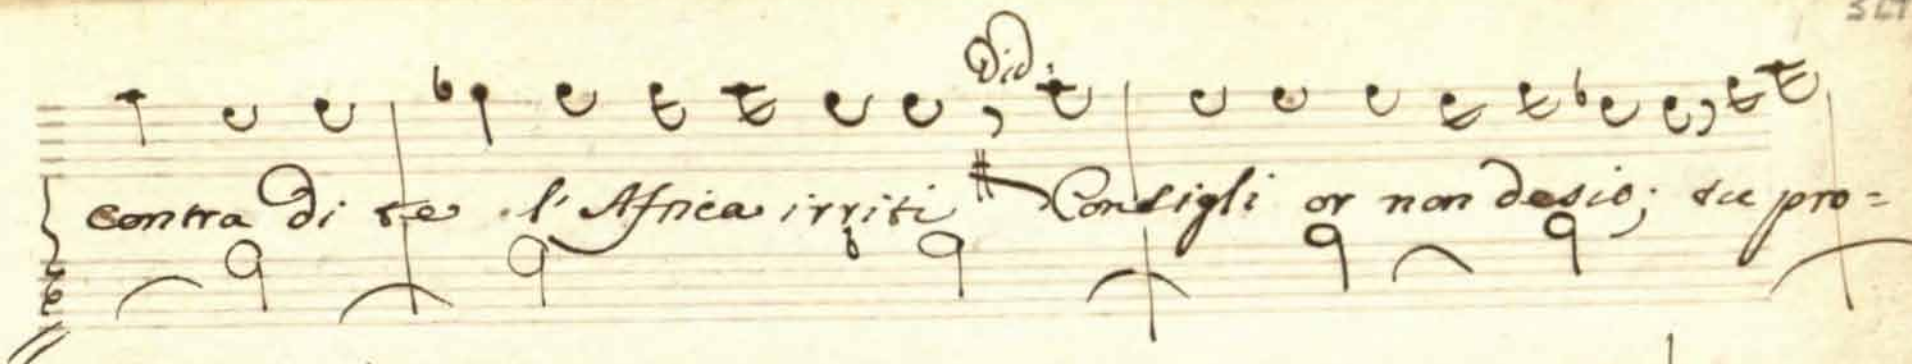 Did.
contra di te l'Africa irriti Consigli or non desio; tu pro=